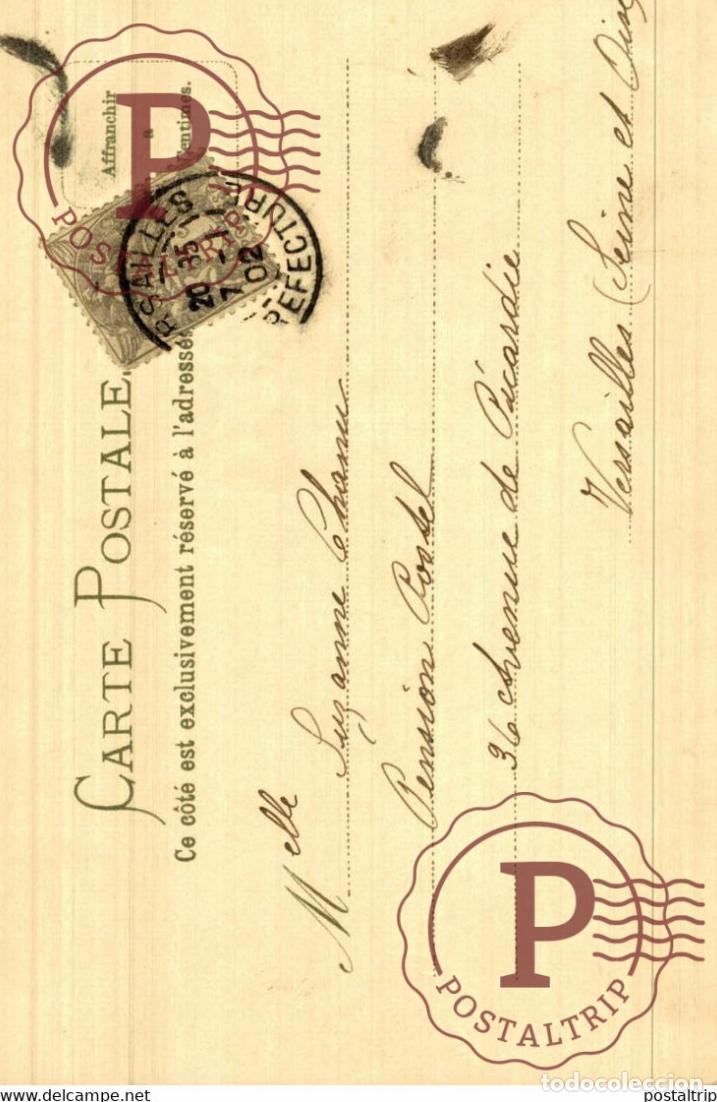 Affranchir
à
Centimes.
VERSAILLES
20 35
7 -1
02
PREFECTURE
CARTE POSTALE
Ce côté est exclusivement réservé à l'adresse
Melle Suzanne
Pension Postel
36 Avenue de Picardie
Versailles (Seine et Oise
P
POSTALTRIP
P
POSTALTRIP
todocoleccion
www.delcampe.net
postaltrip